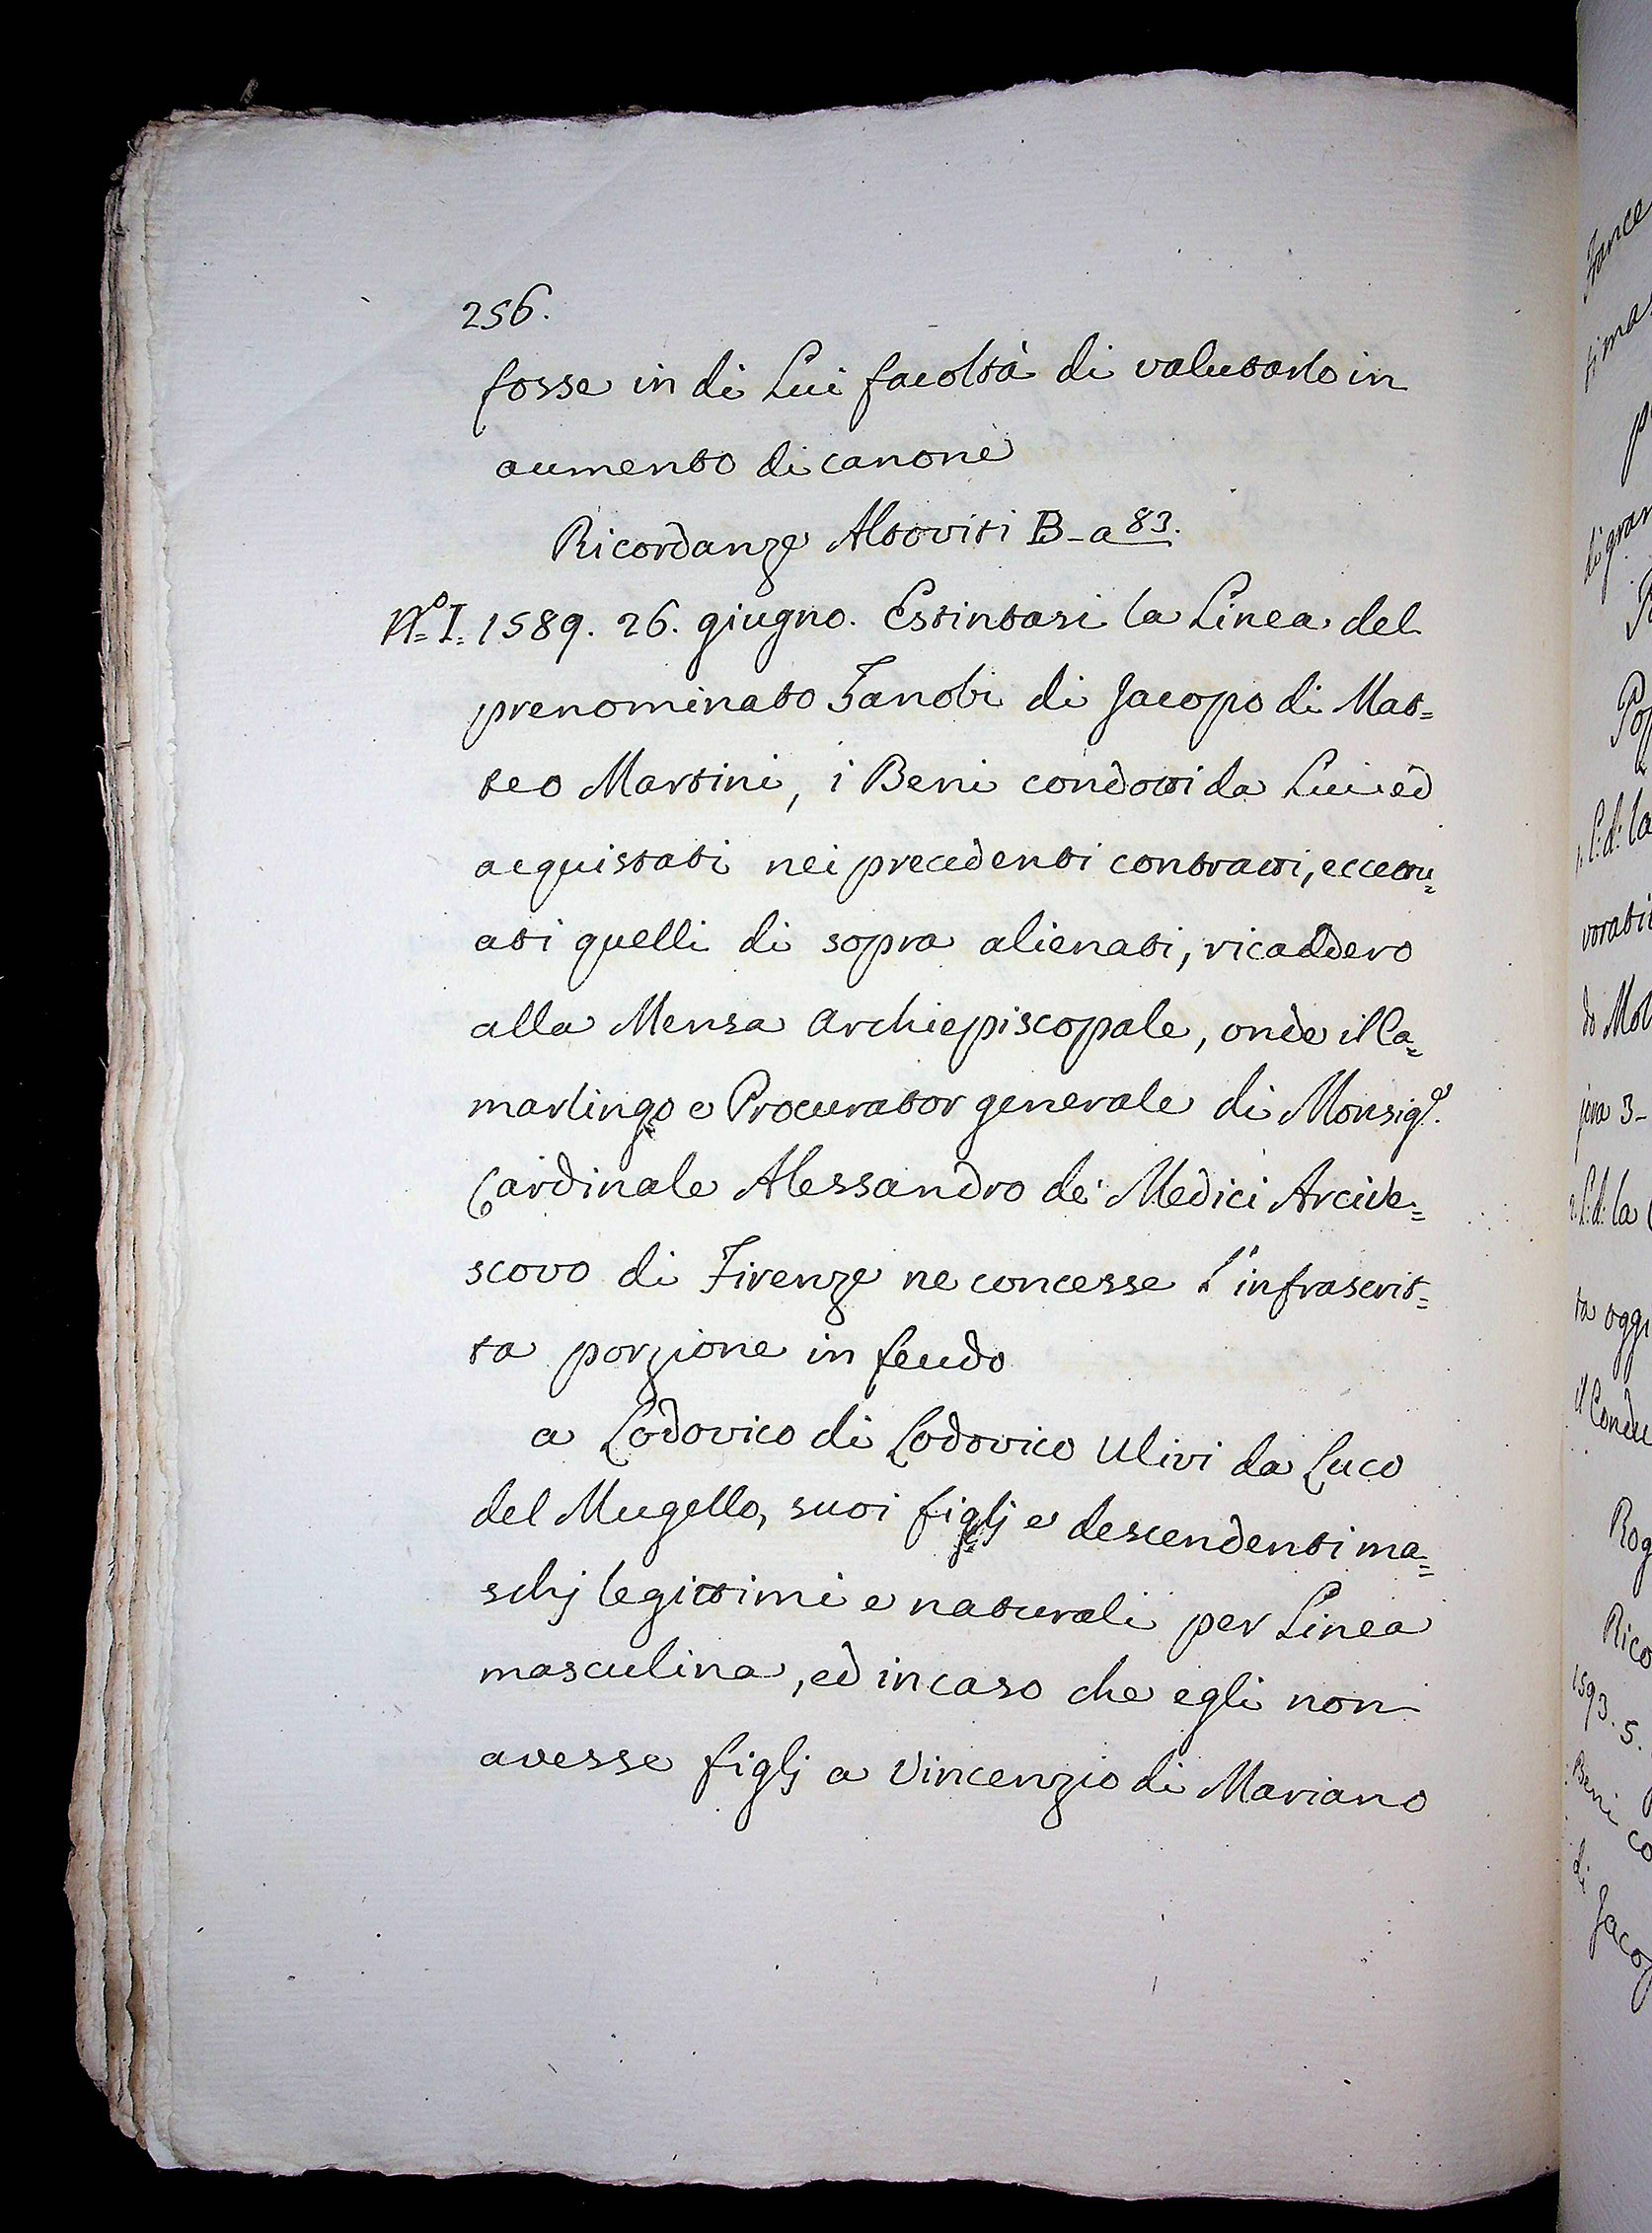 256.
fosse in di Lui facoltà di valutarlo in
aumento di canone
Ricordanze Altoviti B - a 83.
N.º I. 1589. 26. giugno. Estintasi la Linea del
prenominato Zanobi di Jacopo di Mat=
teo Martini, i Beni condotti da Lui ed
acquistati nei precedenti contratti, eccettu=
ati quelli di sopra alienati, ricaddero
alla Mensa Archiepiscopale, onde il Ca=
marlingo e Procurator generale di Monsig.ᵉ
Cardinale Alessandro de' Medici Arcive=
scovo di Firenze ne concesse l'infrascrit=
ta porzione in feudo
a Lodovico di Lodovico Ulivi da Luco
del Mugello, suoi figlj e descendenti ma=
schj legittimi e naturali per Linea
masculina, ed in caso che egli non
avesse figlj a Vincenzio di Mariano
ti
p
L: d: la
do Mol
3 -
L: d: la
ta oggi
il Condu
Rog
Rico
1593. 5.
Beni co
di Jaco